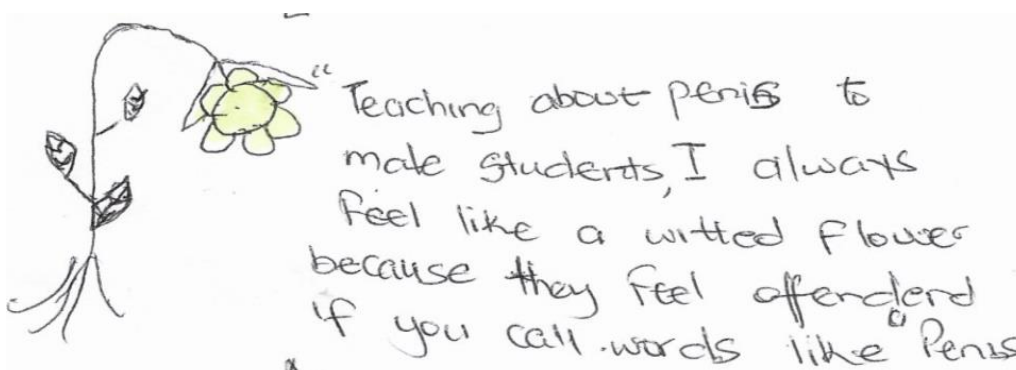 " Teaching about penis to
male students, I always
feel like a witted flower
because they feel offenderd
if you call words like "Penis